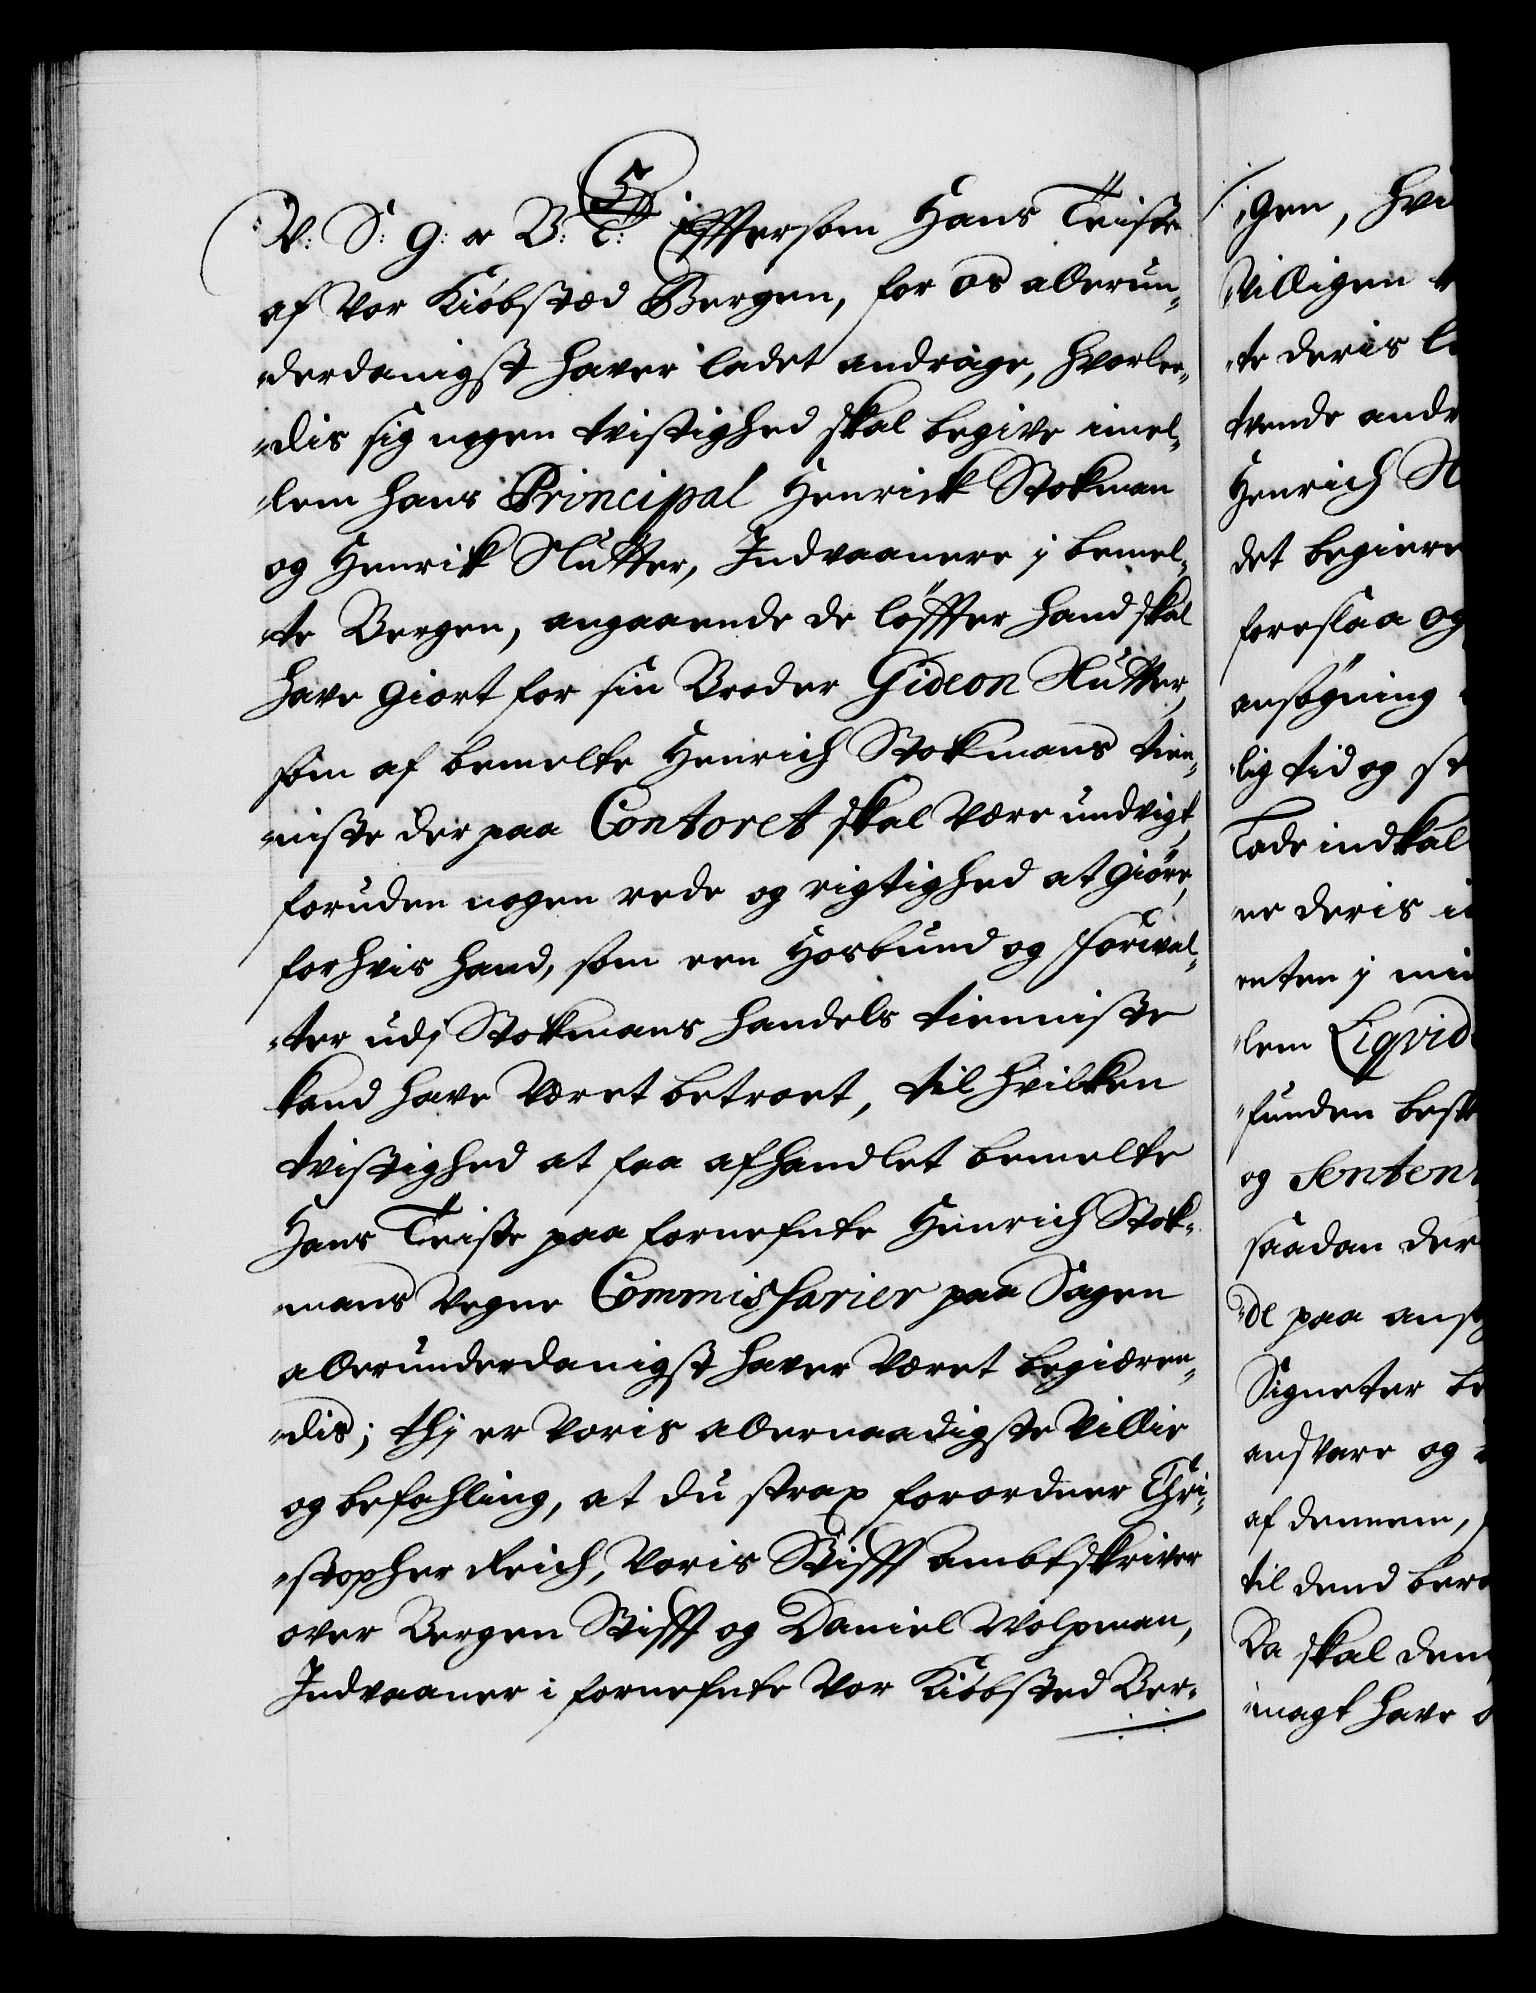 5
V: S: G: or B: T: Efftersom Hans Teiste
af Vor Kiöbsted Bergen, for os allerun¬
derdanigst haver ladet andrage, hvorlee¬
dis sig nogen tvistighed skal begive imel¬
lem hans Principal Henrick Stokman
og Henrik Nutter, Indvaanere i bemel¬
te Bergen, angaaende de löffter hand skal
have giort for sin Broder Gideon Nutter,
som af bemelte Henrich Stokmans tien¬
niste der paa Contoret skal være undvigt,
foruden nogen rede og rigtighed at giöre,
for hvis hand, som een Hosbund og forval¬
ter udj Stokmans handels tienniste
kand have været betroet, til hvilken
tvistighed at faa afhandlet bemelte
Hans Teiste paa fornefnte Henrich Stok¬
mans Vegne Commissarier paa Sagen
allerunderdanigst haver været begiæren¬
dis; thj er Voris allernaadigste Villie
og befahling, at du strax forordner Chri¬
stopher Reich, Voris Stifft ambtskriver
over Bergen Stifft og Daniel Wolpman,
Indvaaner i fornefnte Vor Kiöbsted Ber¬
gen,
Villigen
te deris
tvende
Henrich
det
foreslaa og
ansögning
lig tid og
lade
er deris
enten j
lem
funden
og
saadan
de paa
Signeter
andsvare og
af dennem,
til dend
Da skal
magt have